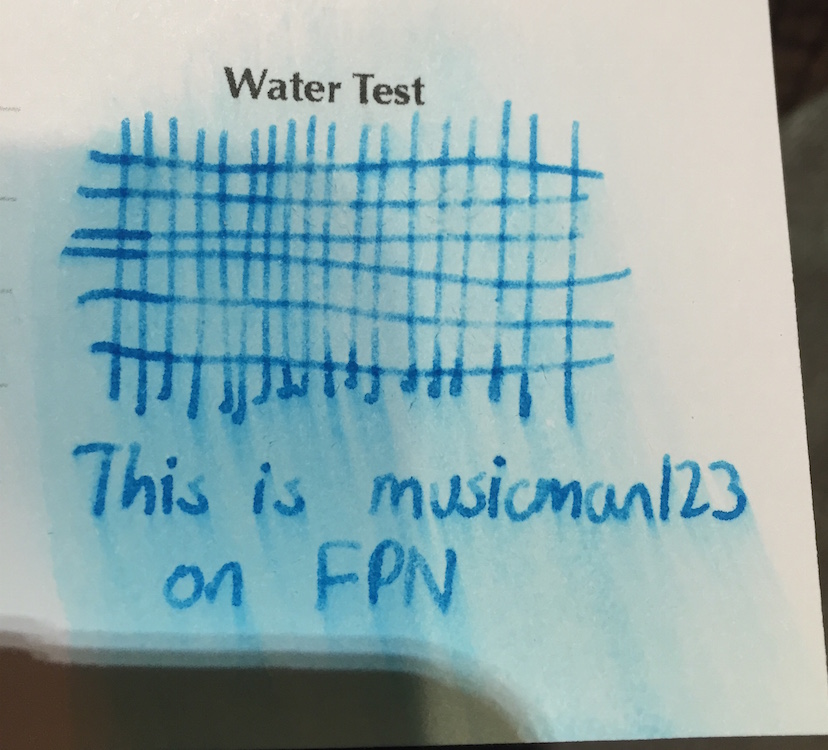 Water Test
This is musicman123
on FPN